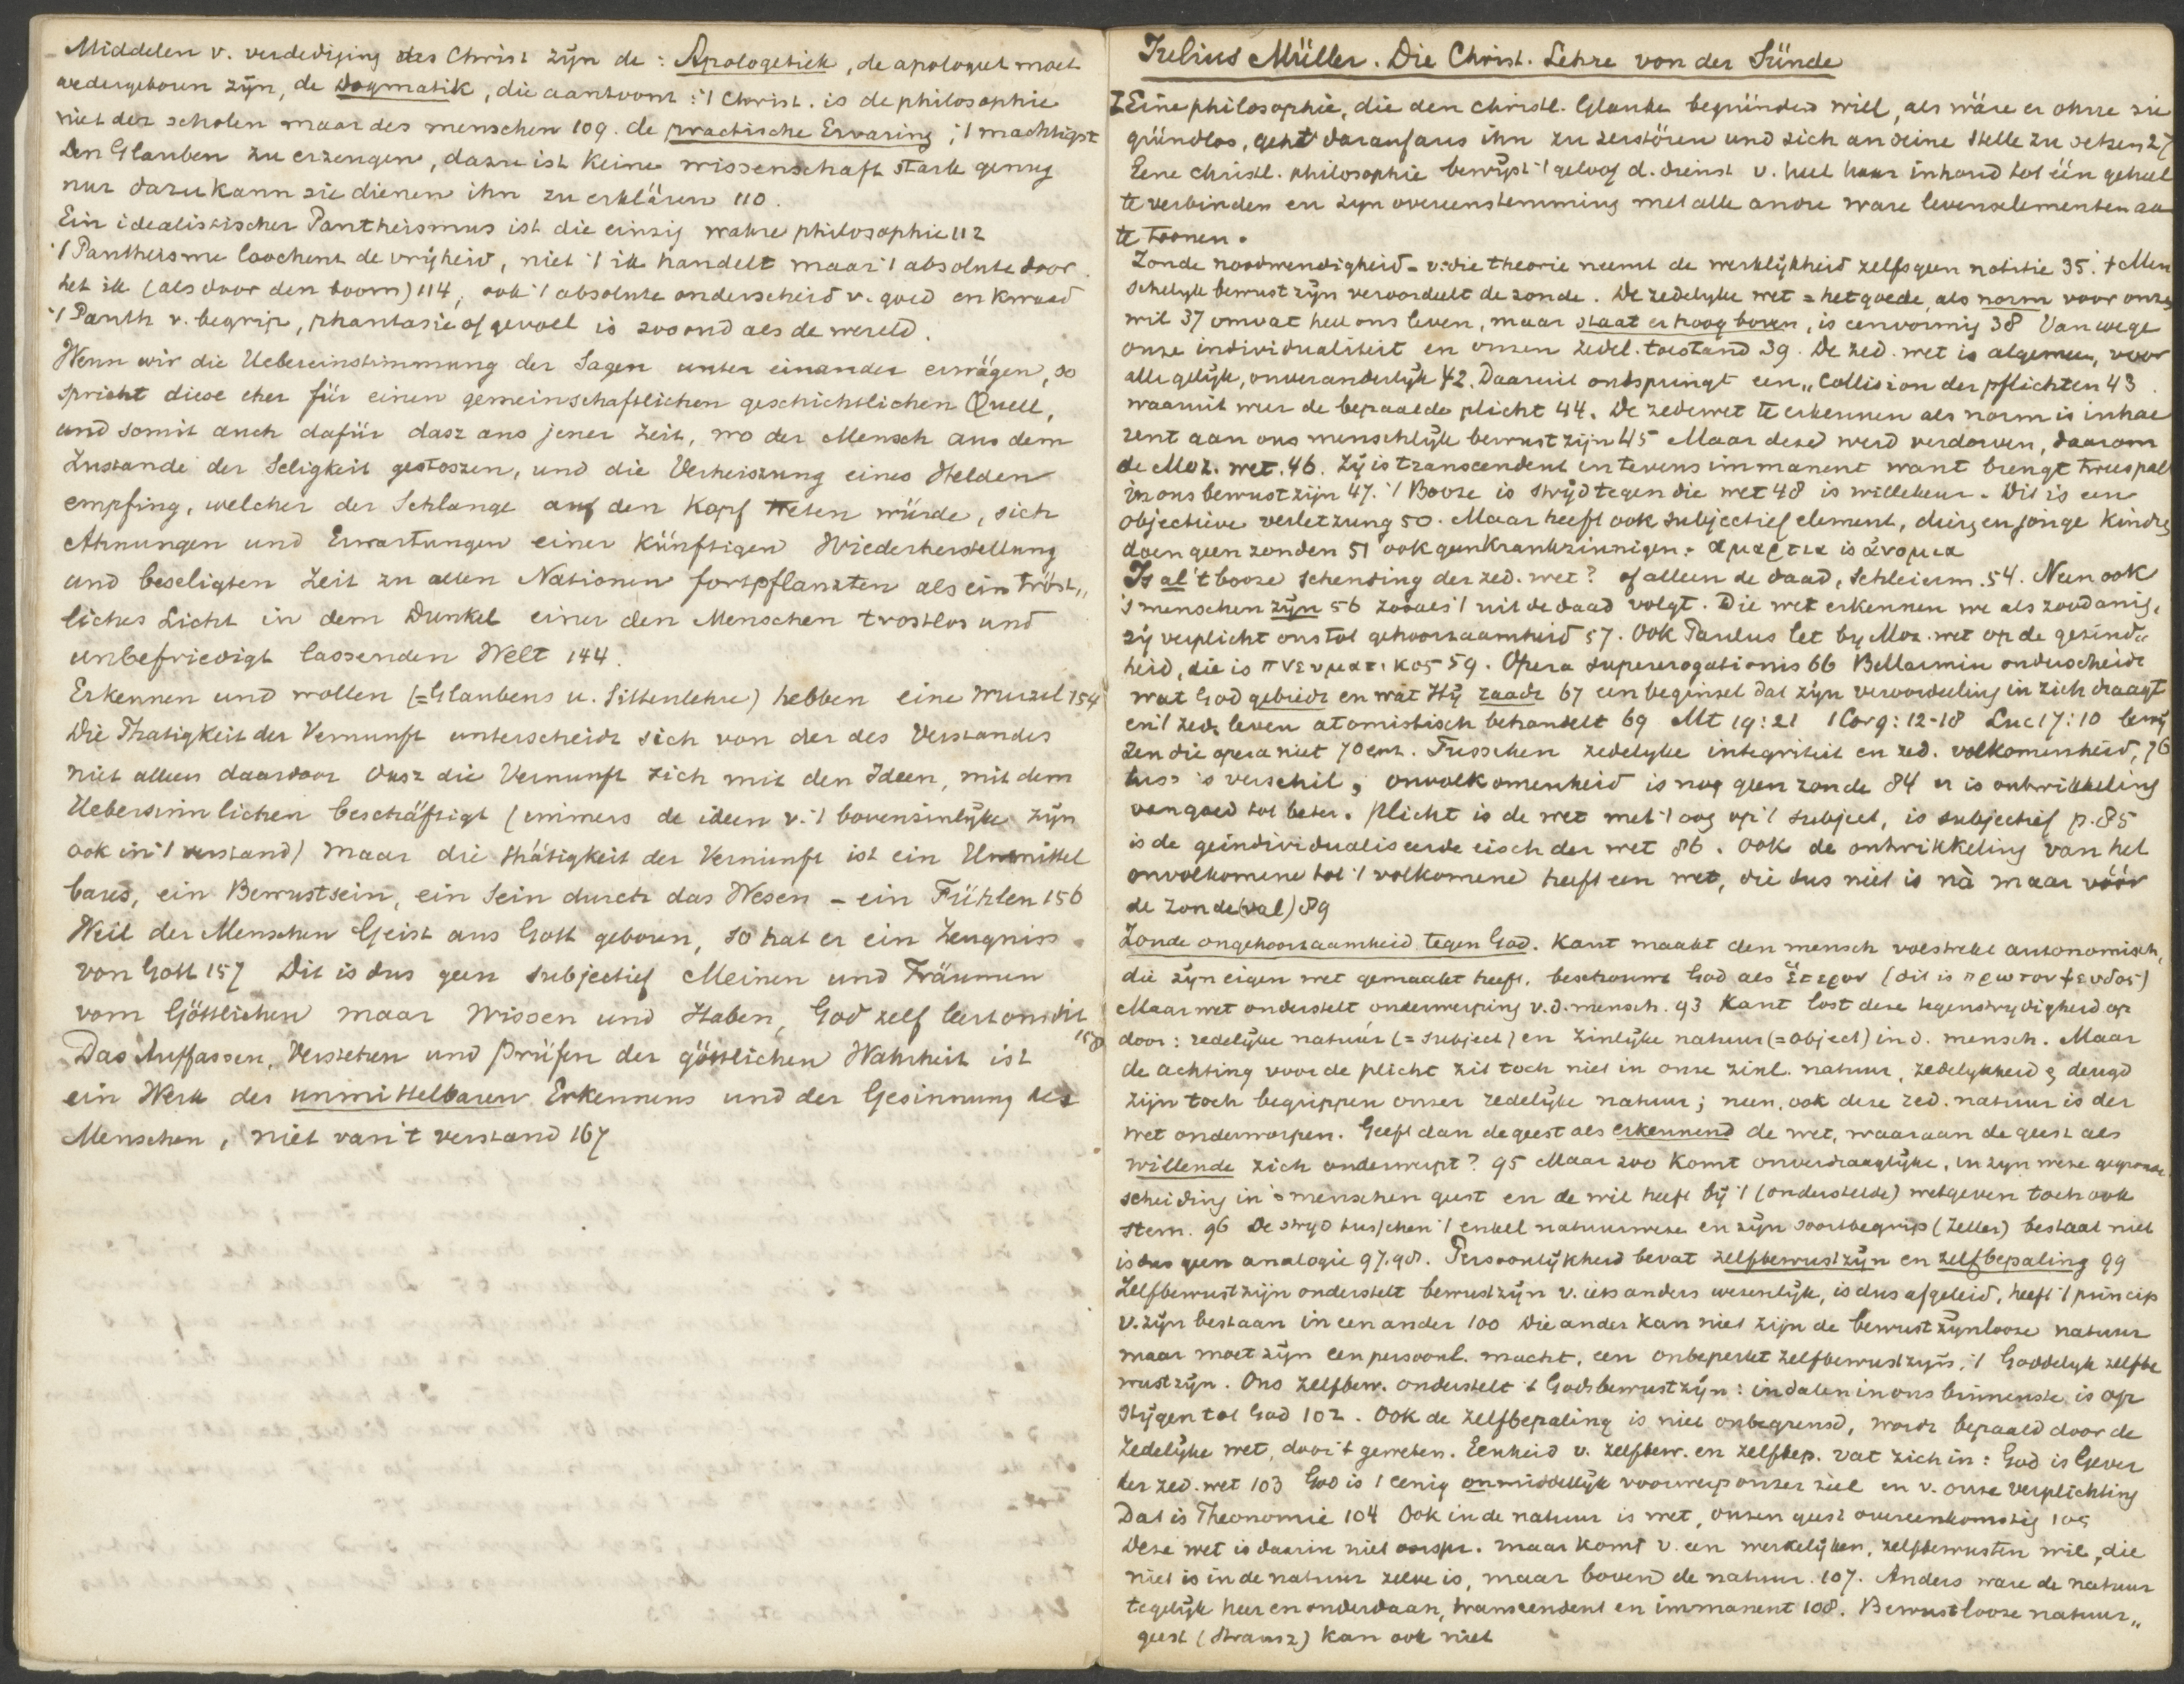 Middelen v. verdediging des Christ zijn de : Apologetiek, de apologeet moet
wedergeboren zijn, de Dogmatik, die aantoont : 't Christ. is de philosophie
niet der scholen maar des menschen 109. de practische Ervaring ; 't machtigst
Den Glauben zu erzeugen, dazu ist keine wissenschaft stark genug
nur dazu kann sie dienen ihn zu erklären 110.
Ein idealistischer Pantheismus ist die einzig wahre philosophie 112
't Pantheisme loochent de vrijheid, niet 't ik handelt maar 't absolute door
het ik (als door den boom) 114, ook 't absolute onderscheid v. goed en kwaad
't Panth v. begrip, phantasie of gevoel is zoo oud als de wereld.
Wenn wir die Uebereinstimmung der Sagen unter einander erwägen, so
spricht diese eher für einen gemeinschaftlichen geschichtlichen Quell,
und somit auch dafür dasz aus jener Zeit, wo der Mensch aus dem
Zustande der Seligkeit gestoszen, und die Verheiszung eines Helden
empfing, welcher der Schlange auf den Kopf treten würde, sich
Ahnungen und Erwartungen einer künftigen Wiederherstellung
und beseligten Zeit zu allen Nationen fortpflanzten als ein tröst,,
liches Licht in dem Dunkel einer den Menschen trostlos und
unbefriedigt lassenden Welt 144.
Erkennen und wollen (=Glaubens u. Sittenlehre) hebben eine Wurzel 154
Die Thatigkeit der Vernunft unterscheidt sich von der des Verstandes
niet alleen daardoor dasz die Vernunft zich mit den Ideen, mit dem
Uebersinnlichen beschäftigt (immers de ideen v. 't bovenzinlijke zijn
ook in 't verstand) maar die thätigkeit der Vernunft ist ein Unmittel
bares, ein Bewustsein, ein Sein durch das Wesen - ein Fühlen 156
Weil der Menschen Geist aus Gott geboren, so hat er ein Zeugniss
von Gott 157 Dit is dus geen subjectief Meinen und Träumen
vom Göttlichen maar Wissen und Haben, God zelf leert ons dit
158
Das Auffassen, Verstehen und Prüfen der göttlichen Wahrheit ist
ein Werk des unmittelbaren Erkennens und der Gesinnung des
Menschen, niet van 't verstand 167
Julius Müller. Die Christ. Lehre von der Sünde
Eine philosophie, die den christl. Glaube begründen will, als wäre er ohne sie
gründlos, geht darauf aus ihn zu zerstören und sich an seine Stelle zu setzen 27
Eene christl. philosophie bewijst 't geloof d. dienst v. heel haar inhoud tot één geheel
te verbinden en zijn overeenstemming met alle andre ware levenselementen aan
te toonen.
Zonde noodwendigheid - v. die theorie neemt de werklijkheid zelfs geen notitie 35. 't Men
schelijk bewustzijn veroordeelt de zonde. De zedelijke wet = het goede, als norm voor onze
wil 37 omvat heel ons leven, maar staat er hoog boven, is eenvormig 38 Vanwege
onze individualiteit en onzen zedel. toestand 39. De zed. wet is algemeen, voor
alle gelijk, onveranderlijk 42. Daaruit ontspringt een „Collision der pflichten 43.
waaruit weer de bepaalde plicht 44. De zedewet te erkennen als norm is inhae
rent aan ons menschlijk bewustzijn 45 Maar deze werd verdorven, daarom
de Moz. wet. 46. Zij is transcendent en tevens immanent want brengt tweespalt
in ons bewustzijn 47. 't Booze is strijd tegen die wet 48 is willekeur. Dit is een
objectieve verletzung 50. Maar heeft ook subjectief element, dieren jonge kindren
doen geen zonden 51 ook geen krankzinnigen. αμαρτια is ἀνομια
Is al 't booze schending der zed. wet? of alleen de daad, Schleierm. 54. Neen ook
's menschen zijn 56 zooals 't uit de daad volgt. Die wet erkennen we als zoodanig,
zij verplicht ons tot gehoorzaamheid 57. Ook Paulus let by Moz. wet op de gezind„
heid, die is πνευματικος 59. Opera supererogationis 66 Bellarmin onderscheidt
wat God gebiedt en wat Hij raadt 67 een beginsel dat zijn veroordeeling in zich draagt
en 't zed. leven atomistisch behandelt 69 Mt 19:21 1 Cor 9:12-18 Luc 17:10 bewij
zen die opera niet 70 env. Tusschen zedelijke integriteit en zed. volkomenheid, 76
tuss 's verschil; onvolkomenheid is nog geen zonde 84 er is ontwikkeling
van goed tot beter. Plicht is de wet met 't oog op 't subject, is subjectief p. 85
is de geïndividualiseerde eisch der wet 86. Ook de ontwikkeling van het
onvolkomene tot 't volkomene heeft een wet, die dus niet is nà maar vóór
de zonde(val) 89
Zonde ongehoorzaamheid tegen God. Kant maakt den mensch volstrekt autonomisch,
die zijn eigen wet gemaakt heeft. beschouwt God als ἕτερον (dit is πρωτον ψευδος)
Maar wet onderstelt onderwerping v. d. mensch. 93 Kant lost deze tegenstrydigheid op
door: zedelijke natuur (= subject) en zinlijke natuur (=object) in d. mensch. Maar
de achting voor de plicht zit toch niet in onze zinl. natuur, zedelykheid & deugd
zijn toch begrippen onzer zedelijke natuur; neen, ook deze zed. natuur is der
wet onderworpen. Geeft dan de geest als erkennend de wet, waaraan de geest als
willende zich onderwerpt? 95 Maar zoo komt onverdraaglijke, in zijn weze gegronde
scheiding in 's menschen geest en de wil heeft bij 't (onderstelde) wetgeven toch ook
stem. 96 De strijd tusschen 't enkel natuurweze en zijn soortbegrip (Zeller) bestaat niet
is dus geen analogie 97.98. Persoonlijkheid bevat zelfbewustzijn en zelfbepaling 99
Zelfbewustzijn onderstelt bewustzijn v. iets anders wezenlijk, is dus afgeleid, heeft 't princip
v. zijn bestaan in een ander 100 Die ander kan niet zijn de bewustzijnlooze natuur
maar moet zijn een persoonl. macht, een onbeperkt zelfbewustzijn, 't Goddelyk zelfbe
wustzijn. Ons zelfbew. onderstelt 't Godsbewustzijn: indalen in ons binnenste is op
stijgen tot God 102. Ook de zelfbepaling is niet onbegrensd, wordt bepaald door de
zedelijke wet, door 't geweten. Eenheid v. zelfbew. en zelfbep. vat zich in: God is Gever
der zed. wet 103 God is 't eenig onmiddellijk voorwerp onzer ziel en v. onze verplichting
Dat is Theonomie 104 Ook in de natuur is wet, onzen geest overeenkomstig 105
Deze wet is daarin niet oorspr. maar komt v. een werkelijken, zelfbewusten wil, die
niet is in de natuur zelve is, maar boven de natuur. 107. Anders ware de natuur
tegelijk heer en onderdaan, transcendent en immanent 108. Bewustlooze natuur„
geest (Strausz) kan ook niet